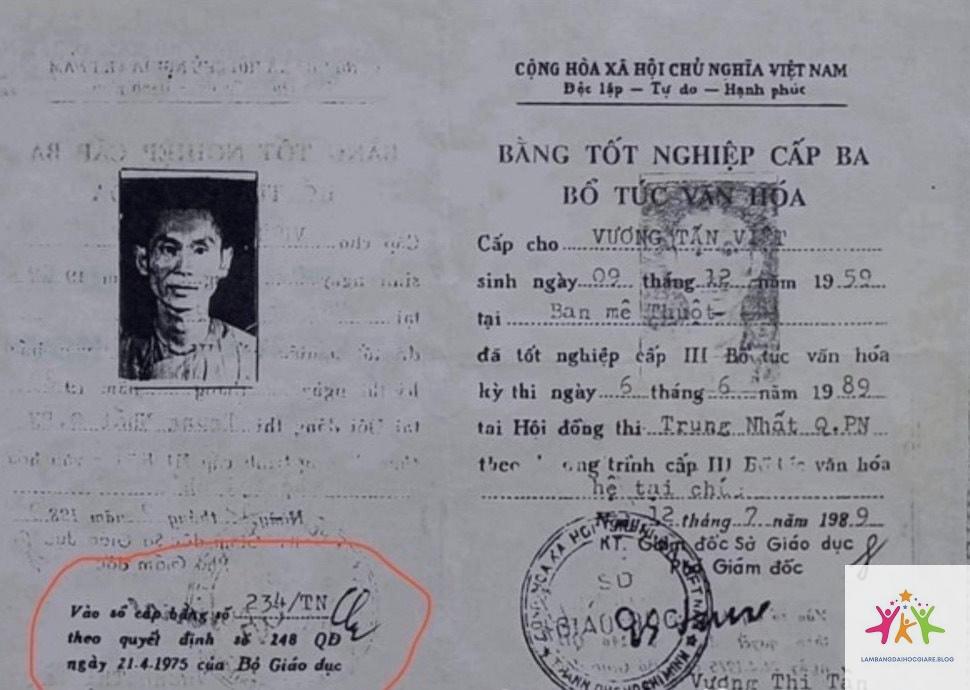 CỘNG HÒA XÃ HỘI CHỦ NGHĨA VIỆT NAM
Độc lập — Tự do — Hạnh phúc
BẰNG TỐT NGHIỆP CẤP BA
BỔ TÚC VĂN HÓA
Cấp cho VƯƠNG TẤN VIỆT
sinh ngày 09 tháng 12 năm 19 59
tại Ban mê Thuột
đã tốt nghiệp cấp III Bổ túc văn hóa
kỳ thi ngày 6 tháng 6 năm 19 89
tại Hội đồng thi Trung Nhất Q.PN
theo trình cấp III văn hóa
hệ tại
12 tháng 7 năm 198 9
KT. Giám đốc Sở Giáo dục
Phó Giám đốc
SỞ
GIÁO DỤC
Vương Thị
Vào sổ cấp bằng số 234/TN
theo quyết định số 148 QĐ
ngày 21.4.1975 của Bộ Giáo dục
LAMBANGDAIHOCGIARE.BLOG